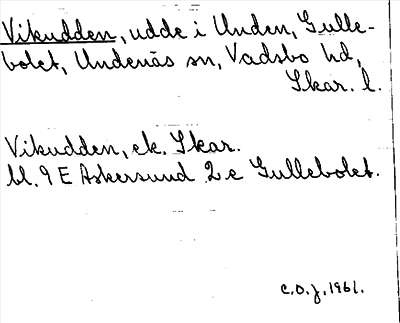 Vikudden, udde i Unden, Gulle-
bolet, Undenäs sn, Vadsbo hd,
Skar. l.
Vikudden, ek. Skar.
bl. 9 E Askersund 2 e Gullebolet.
C.O.J. 1961.